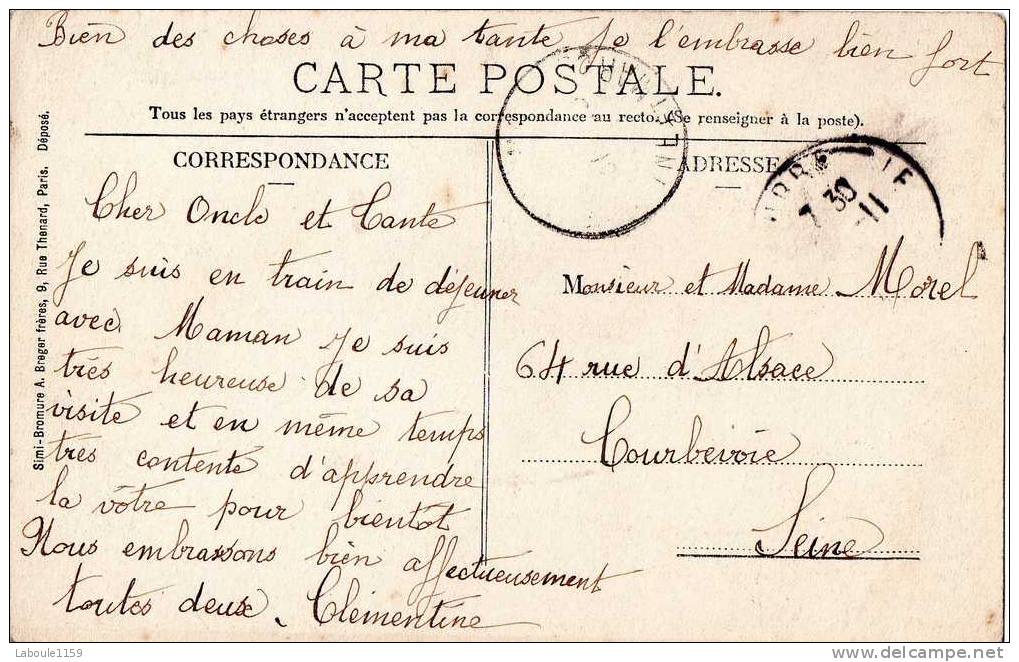 Bien des choses à ma tante Je l'embrasse bien fort
CARTE POSTALE.
Tous les pays étrangers n'acceptent pas la correspondance au recto. (Se renseigner à la poste).
CORRESPONDANCE
Cher Oncle et Tante
Je suis en train de déjeuner
avec Maman Je suis
très heureuse de sa
visite et en même temps
très contente d'apprendre
la vôtre pour bientôt
Nous embrassons bien affectueusement
toutes deux. Clémentine
ADRESSE
7 30
11
Monsieur et Madame Morel
64 rue d'Alsace
Courbevoie
Seine
Simi-Bromure A. Breger frères, 9, Rue Thenard, Paris. Déposé.
Laboule1159
www.delcampe.net